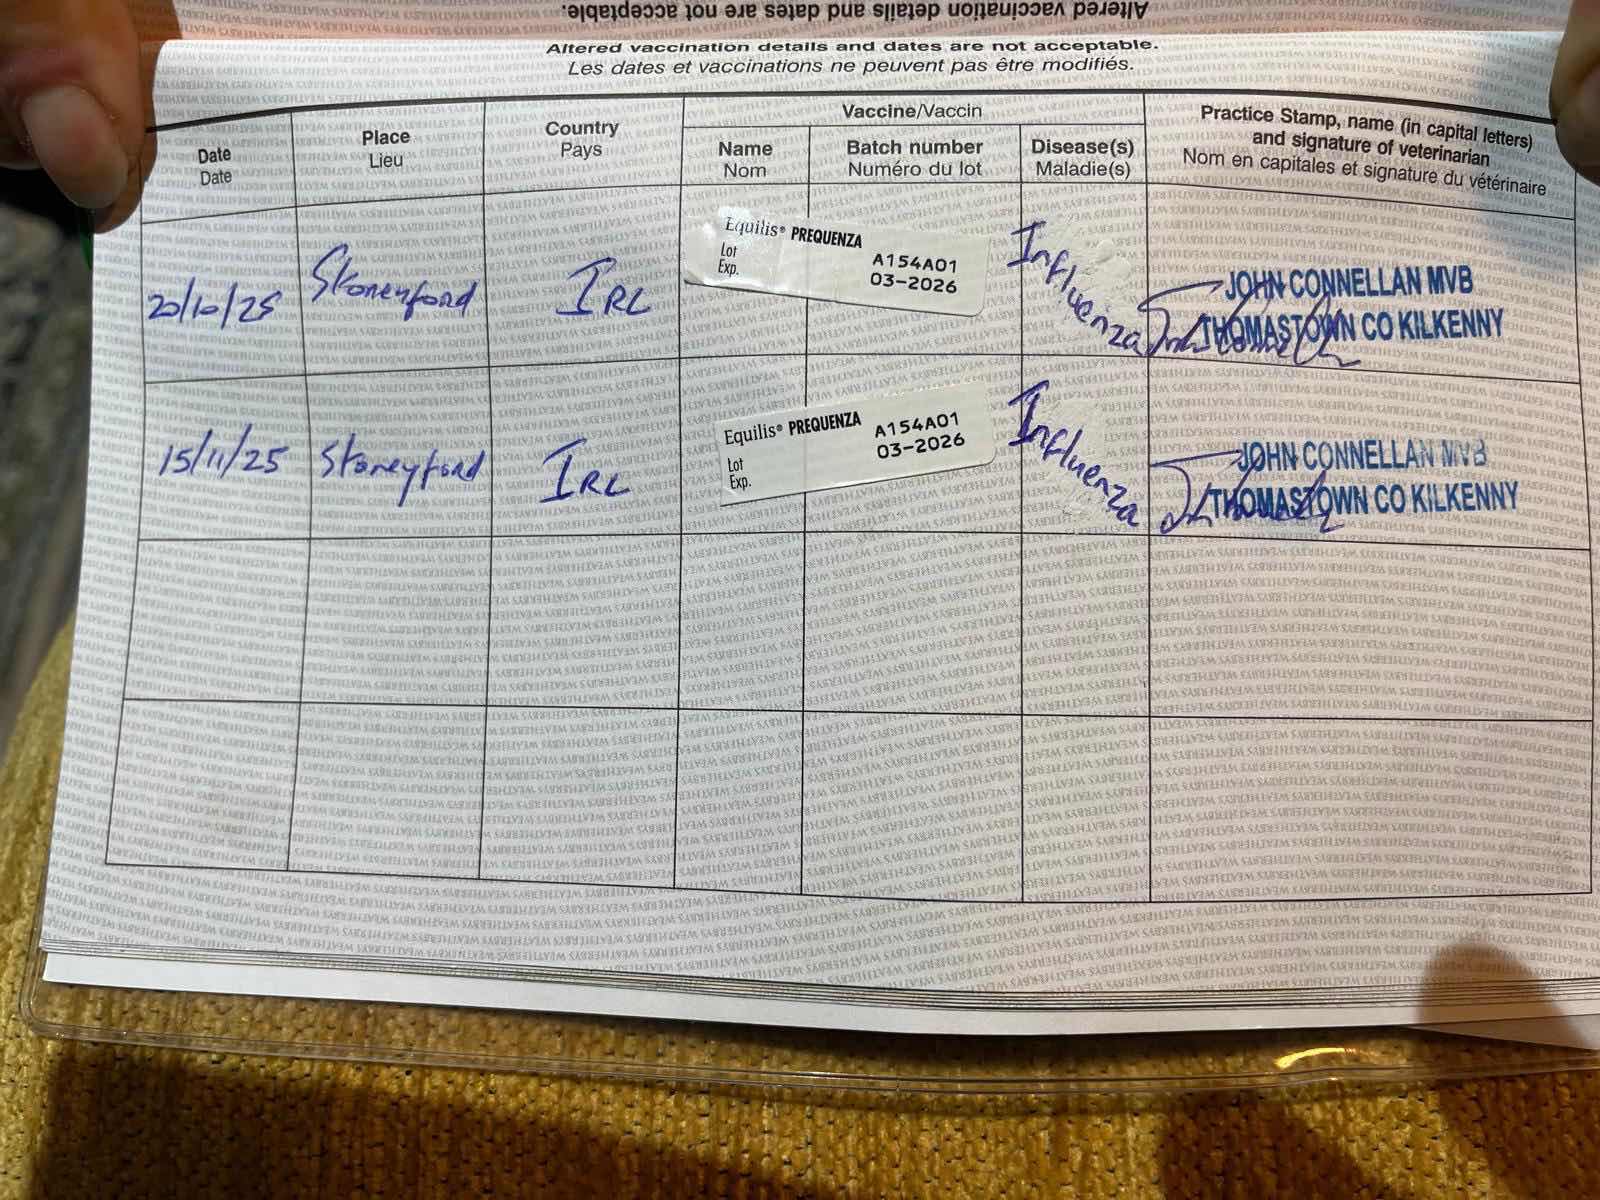 Altered vaccination details and dates are not acceptable.
Altered vaccination details and dates are not acceptable.
Les dates et vaccinations ne peuvent pas être modifiés.
Date
Date
Place
Lieu
Country
Pays
Vaccine/Vaccin
Name
Nom
Batch number
Numéro du lot
Disease(s)
Maladie(s)
Practice Stamp, name (in capital letters)
and signature of veterinarian
Nom en capitales et signature du vétérinaire
20/10/25
Stoneyford
IRL
Equilis® PREQUENZA
Lot A154A01
Exp. 03-2026
Influenza
JOHN CONNELLAN MVB
THOMASTOWN CO KILKENNY
15/11/25
Stoneyford
IRL
Equilis® PREQUENZA
Lot A154A01
Exp. 03-2026
Influenza
JOHN CONNELLAN MVB
THOMASTOWN CO KILKENNY